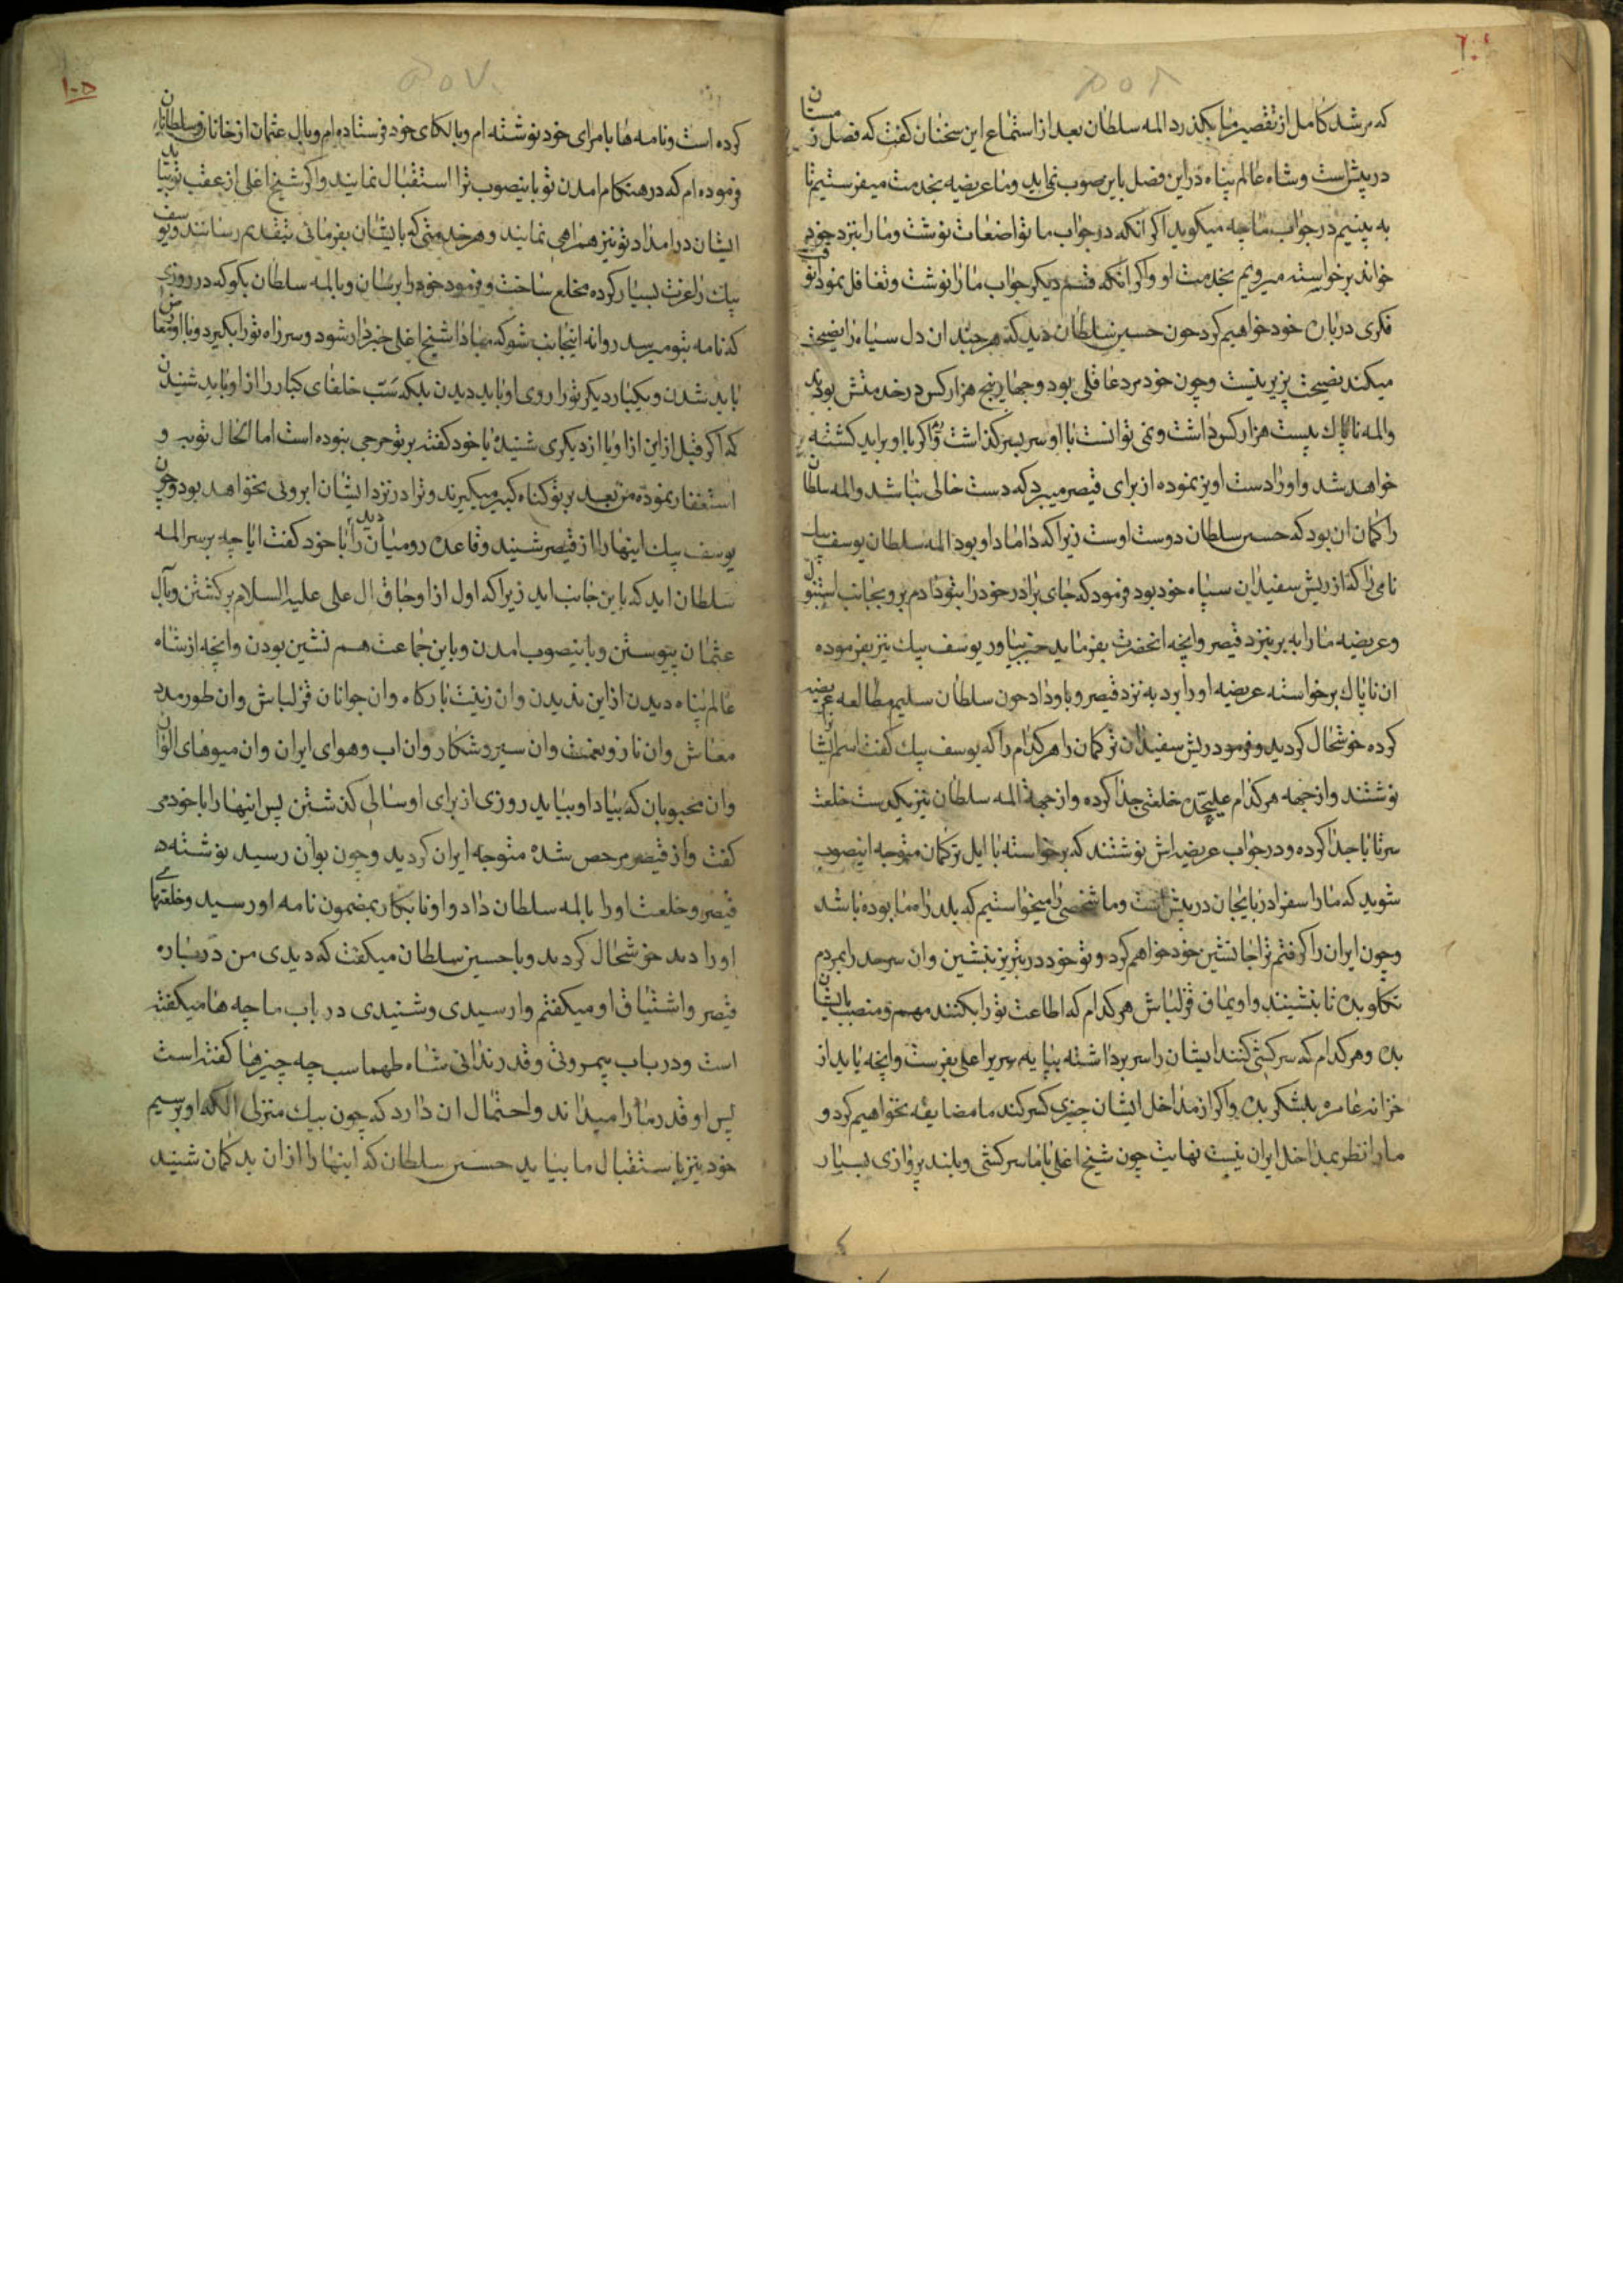 که مرشد کامل از تقصیر ما بگذرد المه سلطان بعد از استماع این سخنان گفت که فصل زمستان
در پیش است و شاه عالم پناه در این فصل باین صوب نمی اید و ما عریضه بخدمت میفرستیم تا
به بینیم در جواب ما چه میگوید اگر انکه در جواب ما تواضعات نوشت و ما را بنزد خود
خواند برخواسته میرویم بخدمت او و اگر انکه قسم دیگر جواب ما را نوشت و تغافل نمود
فکری در باره خود خواهیم کرد چون حسین سلطان دید که هر چند ان دل سیاه را نصیحت
میکند نصیحت پزیر نیست و چون خود مرد عاقلی بود و چهار پنج هزار کس در خدمتش بودند
والمه ناپاک بیست هزار کس داشت و نمی توانست با او سر بسر گذاشت و اگر با او براید کشته
خواهد شد و او را دست اویز نموده از برای قیصر میبرد که دست خالی نباشد والمه سلطان
را گمان ان بود که حسین سلطان دوست اوست زیرا که داماد او بود المه سلطان یوسف بیک
نامی را که از ریش سفیدان سپاه خود بود فرمود که جای برادر خود را بتو دادم برو بجانب استنبول
و عریضه ما را به بر بنزد قیصر و انچه انحضرت بفرماید خبر بیاور یوسف بیک نیز بفرموده
ان ناپاک برخواسته عریضه او را برد به نزد قیصر و باو داد چون سلطان سلیم مطالعه عریضه
کرده خوشحال گردید و فرمود ریش سفیدان ترکمان را هر کدام را که یوسف بیک گفت اسم ایشان
نوشتند و از جهه هر کدام علیحده خلعتی جدا کرده و از جهة المه سلطان نیز یکدست خلعت
سر تا پا جدا کرده و در جواب عریضه اش نوشتند که برخواسته با ایل ترکمان متوجه اینصوب
شوید که ما را سفر اذربایجان در پیش است و ما شخصی را میخواستیم که بلد راه ما بوده باشد
و چون ایران را گرفتم ترا جانشین خود خواهم کرد و تو خود در تبریز بنشین و ان سرحد را بمردم
تکلو بده تا بنشینند و اویماق قزلباش هر کدام که اطاعت تو را بکنند مهم و منصب بایشان
بده و هر کدام که سرکشی کنند ایشان را سر برداشته بپایه سریر اعلی بفرست و انچه باید از
خزانه عامره بلشکر بده و اگر از مداخل ایشان چیزی کسر کند ما مضایقه نخواهیم کرد و
ما را نظر بمداخل ایران نیست نهایت چون شیخ اغلی با ما سرکشی و بلند پروازی بسیار
کرده است و نامه ها بامرای خود نوشته ام و بالکای خود فرستاده ام و بال عثمان از خانان و سلطانان
فرموده ام که در هنگام امدن تو باینصوب ترا استقبال نمایند و اگر شیخ اغلی از عقب تو بیاید
ایشان در امداد تو نیز همراهی نمایند و هر خدمتی که بایشان بفرمائی بتقدیم رسانند و یوسف
بیک را عزت بسیار کرده مخلع ساخت و فرمود خود را برسان و بالمه سلطان بگو که در روزی
که نامه بتو میرسد روانه اینجانب شو که مبادا شیخ اغلی خبردار شود و سر راه تو را بگیرد و با او
باید شدن و یکبار دیگر تو را روی او باید دیدن بلکه سَبّ خلفای کبار را از او باید شنیدن
که اگر قبل از این از او یا از دیگری شنیده یا خود گفته بر تو حرجی نبوده است اما الحال توبه و
استغفار نموده من بعد بر تو گناه کبیر میگیرند و ترا در نزد ایشان ابروئی نخواهد بود و چون
یوسف بیک اینها را از قیصر شنید و قاعده رومیان را دید با خود گفت ایا چه بر سر المه
سلطان اید که باین جانب اید زیرا که اول از اوجاق ال علی علیه السلام برگشتن و بال
عثمان پیوستن و باینصوب امدن و باین جماعت هم نشین بودن و انچه از شاه
عالم پناه دیدن از این ندیدن و ان زینت بارگاه و ان جوانان قزلباش و ان طور مدد
معاش و ان ناز و نعمت و ان سیر و شکار و ان اب و هوای ایران و ان میوهای الوان
و ان محبوبان که بیاد او بیاید روزی از برای او سالی گذشتن پس اینها را با خود می
گفت و از قیصر مرخص شده متوجه ایران گردید و چون بوان رسید نوشته
قیصر و خلعت او را بالمه سلطان داد و او نابکار بمضمون نامه او رسید و خلعتهای
او را دید خوشحال گردید و با حسین سلطان میگفت که دیدی من در باره
قیصر و اشتیاق او میگفتم وا رسیدی و شنیدی در باب ما چه ها میگفته
است و در باب بیمروتی و قدر ندانی شاه طهماسب چه چیزها گفته است
پس او قدر ما را میداند و احتمال ان دارد که چون بیک منزلی الکه او برسیم
خود نیز باستقبال ما بیاید حسین سلطان که اینها را از ان بد گمان شنید